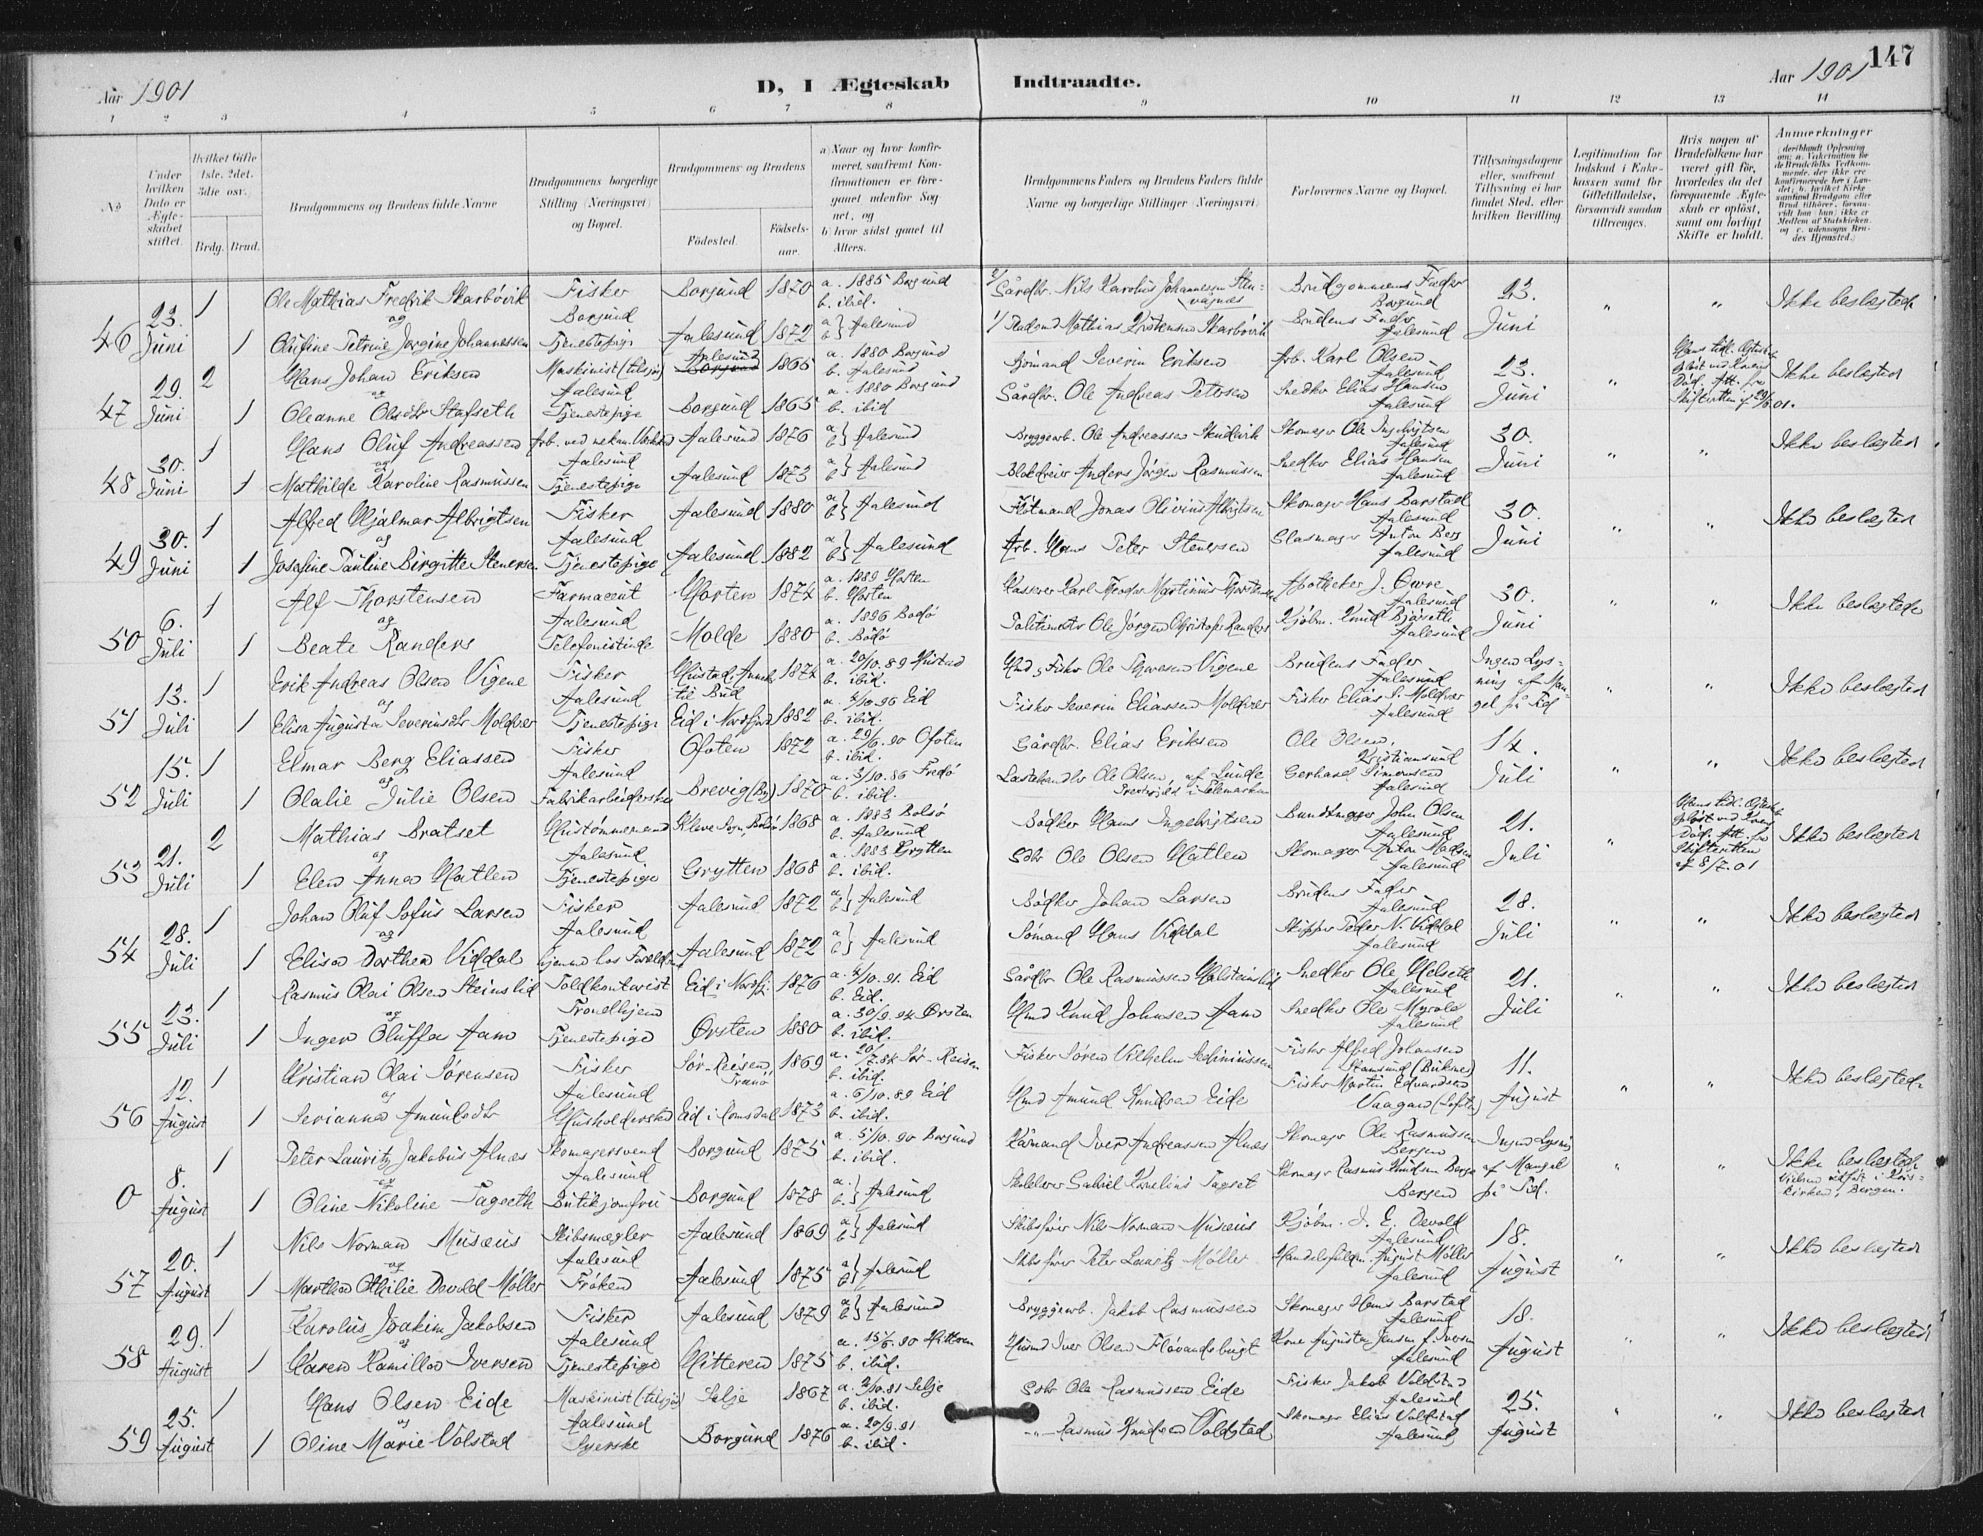 147
Aar 1901
D, I Ægteskab Indtraadte.
Aar 1901
1 2 3 4 5 6 7 8 9 10 11 12 13 14
No
Under hvilken Dato er Ægteskabet stiftet.
Hvilket Gifte 1ste. 2det. 3die osv.
Brdg. Brud.
Brudgommens og Brudens fulde Navne
Brudgommens borgerlige Stilling (Næringsvei) og Bopæl.
Brudgommens og Brudens
Fødested.
Fødselsaar.
a) Naar og hvor konfirmeret, saafremt Konfirmationen er foregaaet udenfor Sognet, og
b) hvor sidst gaaet til Alters.
Brudgommens Faders og Brudens Faders fulde Navne og borgerlige Stillinger (Næringsvei)
Forlovernes Navne og Bopæl.
Tillysningsdagene eller, saafremt Tillysning ei har fundet Sted, efter hvilken Bevilling.
Legitimation for Indskud i Enkekassen samt for Giftetilladelse, forsaavidt saadan tiltrænges.
Hvis nogen af Brudefolkene har været gift før, hvorledes da det foregaaende Ægteskab er opløst, samt om lovligt Skifte er holdt.
Anmerkninger
46 23. Juni 1 Ole Mathias Fredrik Skarbövik Fisker Borgund Borgund 1870 a. 1885 Borgund b. ibid. Gårdbr. Nils Karolius Johannessen Brudgommens Fader Borgund 23. Juni " " Ikke beslægtede
og
1 Olufine Petrine Jørgine Johannessen Tjenestepige Aalesund 1872 a b } Aalesund Mathias Kristensen Skarbövik Brudens Fader Aalesund
47 29. Juni 2 Hans Johan Eriksen Maskinist (tilsjøs) Aalesund Aalesund 1865 a. 1880 Borgund b. Aalesund Sjömand Severin Eriksen Arb. Karl Olsen Aalesund 23. Juni " Ikke beslægted
og
1 Oleanne Olsdtr Stafseth Tjenestepige Borgund 1865 a. 1880 Borgund b. ibid Gårdbr. Ole Andreas Petersen Snedker Elias Hansen Aalesund
48 30. Juni 1 Hans Oluf Andreassen Arb. ved mekan. Værksted Aalesund Aalesund 1876 a b } Aalesund Bryggearb. Ole Andreassen Skudevik Skomager Ole Ingebrigtsen Aalesund 30. Juni " " Ikke beslægted
og
1 Mathilde Karoline Rasmussen Tjenestepige Aalesund 1873 a b } Aalesund Blokdreier Anders Jörgen Rasmussen Snedker Elias Hansen Aalesund
49 30. Juni 1 Alfred Hjalmar Albrigtsen Fisker Aalesund Aalesund 1880 a b } Aalesund Flötmand Jonas Olivius Albrigtsen Skomager Hans Barstad Aalesund 30. Juni " " Ikke beslægted
og
1 Josefine Pauline Birgitte Stenersen Tjenestepige Aalesund 1882 a b } Aalesund Arb. Hans Peter Stenersen Glasmager Anton Berg Aalesund
50 6. Juli 1 Alf Thorstensen Farmaceut Aalesund Horten 1874 a. 1889 Horten b. Horten Kasserer Karl Theodor Martinius Thorstensen Apotheker J. Øwre Aalesund 30. Juni " " Ikke beslægtede
og
1 Beate Randers Telefonistinde Molde 1880 a. 1896 Bodö b. Bodö Politimester Ole Jörgen Christofer Randers Kjöbm. Knud Bjørseth Aalesund
51 13. Juli 1 Erik Andreas Olsen Vigene Fisker Aalesund Hustad, Annex til Bud 1874 a. 20/10.89 Hustad b. ibid. Fisker Ole Vigene Brudens Fader Aalesund Ingen Lysning af Mangel på Tid " " Ikke beslægted
og
1 Elisa Augusta Severinsdtr Moldver Tjenestepige Eid i Nordfjord 1882 a. 4/10.96 Eid b. ibid. Fisker Severin Eliassen Moldver Fisker Elias S. Moldver Aalesund
52 15. Juli 1 Elmar Berg Eliassen Fisker Aalesund Ofoten 1872 a. 29/6.90 Ofoten b. ibid. Gårdbr. Elias Eriksen Ole Olsen, Kristiansund 14. Juli " " Ikke beslægted
og
1 Olalie Julie Olsen Fabrikarbeiderske Brevig (By) 1870 a. 3/10.86 Fredö b. ibid. Ole Olsen, af Lunde i Telemarken Gerhard Simonsen Aalesund
53 21. Juli 2 Mathias Bratset Hustømmermand Aalesund Kleve Sogn, Bolsö 1868 a. 1883 Bolsö b. Aalesund Bødker Hans Ingebrigtsen Bundtmager John Olsen Aalesund 21. Juli " af 8/7.01 Ikke beslægted
og
1 Elen Anna Hatlen Tjenestepige Grytten 1868 a. 1883 Grytten b. ibid. Gdbr Ole Olsen Hatlen Skomager Anton Madsen Aalesund
54 28. Juli 1 Johan Oluf Sofus Larsen Fisker Aalesund Aalesund 1872 a b } Aalesund Bødker Johan Larsen Brudens Fader Aalesund 28. Juli " " Ikke beslægted
og
1 Elisa Dorthea Viddal hjemme hos Forældrene Aalesund 1872 a b } Aalesund Sømand Hans Viddal Skipper Peder N. Viddal Aalesund
55 23. Juli 1 Rasmus Olai Olsen Steinslid Toldkontorist Trondhjem Eid i Nordfj. 1876 a. 4/10.91. Eid b. Eid. Gårdbr Ole Rasmussen Snedker Ole Helseth Aalesund 21. Juli " " Ikke beslægted
og
1 Inger Oluffa Aam Tjenestepige Ørsten 1880 a. 30/9.94 Ørsten b. ibid. Gmd Knud Johnsen Aam Snedker Ole Myrold Aalesund
56 12. August 1 Kristian Olai Sörensen Fisker Aalesund Sör-Reisen, Tranö 1869 a. 20/7.84 Sör-Reisen b. ibid. Fisker Søren Vilhelm Sediniussen Fisker Alfred Johansen Stamsund (Buksnes) 11. August " Ikke beslægted.
og
1 Serianna Amundsdtr Husholderske Eid i Romsdal 1873 a. 6/10.89 Eid b. ibid. Gmd Amund Knudsen Eide Fisker Martin Edvardsen Vaagan (Lofoten)
0 8. August 1 Peter Lauritz Jakobus Alnæs Skomagersvend Aalesund Borgund 1875 a. 5/10.90 Borgund b. ibid. Iver Andreassen Alnæs Skomager Ole Rasmussen Bergen Ingen Lysning af Mangel på Tid. " " Ikke beslægted.
og
1 Oline Nikoline Tagseth Butikjomfru Borgund 1878 a. b. } Aalesund Gabriel Kornelius Tagset Skomager Rasmus Knudsen Berge Bergen
57 20. August 1 Nils Norman Musæus Skibsmegler Aalesund Aalesund 1869 a b } Aalesund Skibsfører Nils Norman Musæus Kjöbm. J. E. Devold Aalesund 18. August " " Ikke beslægted
og
1 Martha Othilie Devold Möller Frøken Aalesund 1875 a b } Aalesund Skibsfører Peter Lauritz Möller Handelsfuldm. August Möller Aalesund
58 29. August 1 Karolus Joakim Jakobsen Fisker Aalesund Aalesund 1879 a b } Aalesund Bryggearb. Jakob Rasmussen Skomager Hans Barstad Aalesund 18. August " " Ikke beslægted
og
1 Karen Kamilla Iversen Tjenestepige Hitteren 1875 a. 15/6.90 Hitteren b. ibid. Husmd Iver Olsen Fløvandsbugt Kone Augusta Jensen f. Iversen Aalesund
59 25. August 1 Hans Olsen Eide Maskinist (tilsjøs) Aalesund Selje 1867 a. 2/10.81 Selje b. ibid. Gdbr Ole Rasmussen Eide Fisker Jakob Voldstad Aalesund 25. August " " Ikke beslægted
og
1 Oline Marie Volstad Syerske Borgund 1876 a. 20/9.91 b. ibid. -"- Rasmus Knudsen Voldstad Skomager Elias Voldstad Aalesund